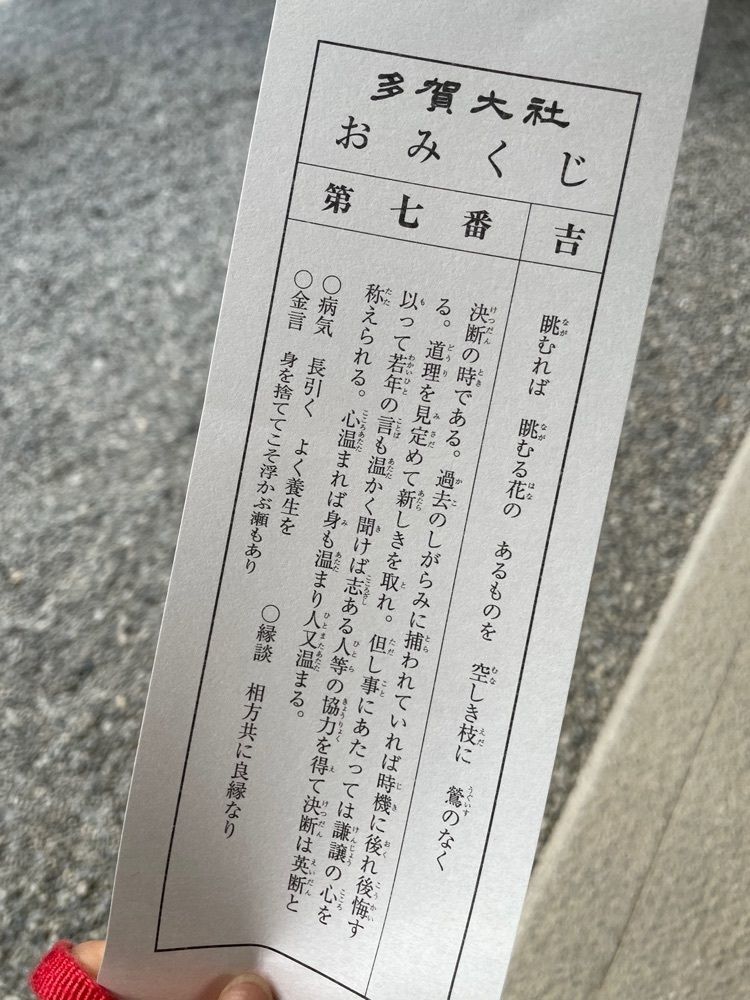 多賀大社
おみくじ
第七番
吉
眺むれば 眺むる花の あるものを 空しき枝に 鶯のなく
決断の時である。過去のしがらみに捕われていれば時機に後れ後悔す
る。道理を見定めて新しきを取れ。但し事にあたっては謙譲の心を
以って若年の言も温かく聞けば志ある人等の協力を得て決断は英断と
称えられる。心温まれば身も温まり人又温まる。
○病気 長引く よく養生を
○縁談 相方共に良縁なり
○金言 身を捨ててこそ浮かぶ瀬もあり